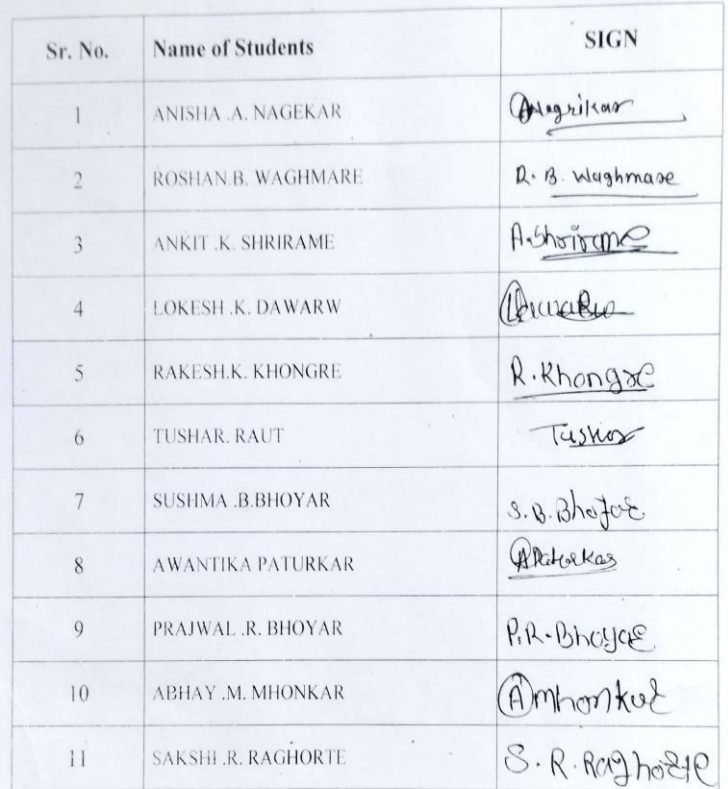 Sr. No. Name of Students SIGN
1 ANISHA .A. NAGEKAR ANagrikar
2 ROSHAN.B. WAGHMARE R. B. Waghmare
3 ANKIT .K. SHRIRAME A.Shrirame
4 LOKESH .K. DAWARW
5 RAKESH.K. KHONGRE R.Khongre
6 TUSHAR. RAUT Tushar
7 SUSHMA .B.BHOYAR S.B.Bhoyar
8 AWANTIKA PATURKAR APaturkar
9 PRAJWAL .R. BHOYAR P.R.Bhoyar
10 ABHAY .M. MHONKAR Amhonkar
11 SAKSHI .R. RAGHORTE S.R.Raghorte